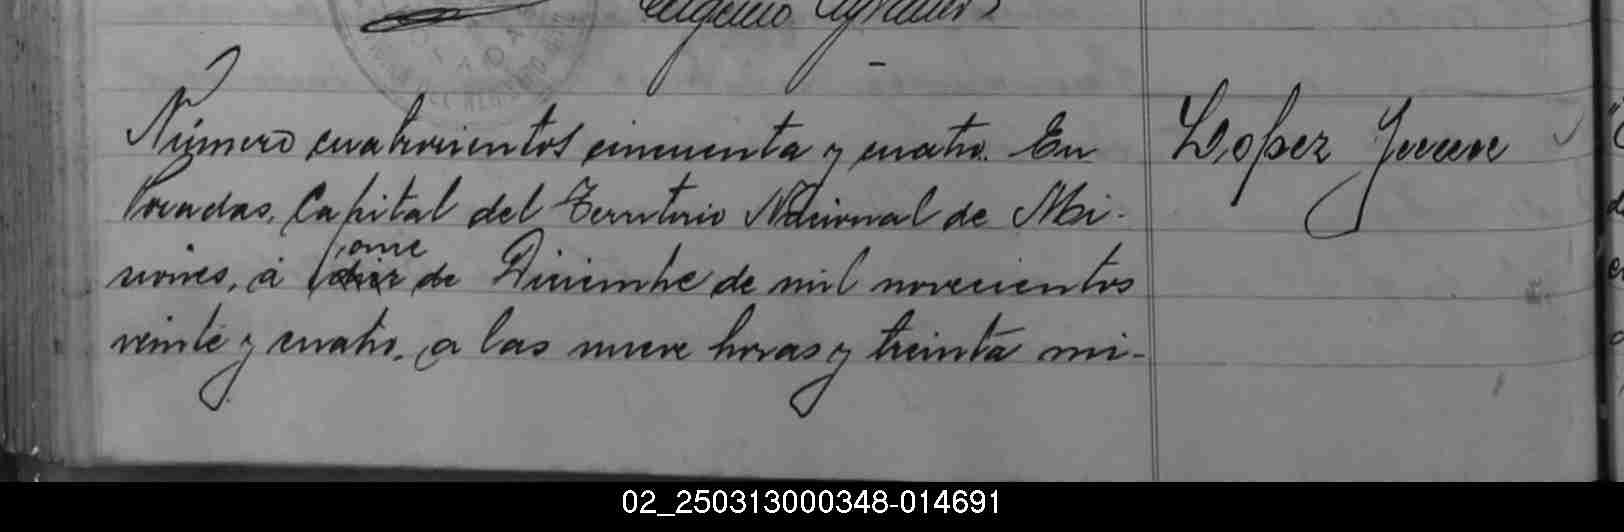 Eugenio
Número cuatrocientos cincuenta y cuatro. En
Posadas, Capital del Territorio Nacional de Mi-
siones, á diez once de Diciembre de mil novecientos
veinte y cuatro, a las nueve horas y treinta mi-
Lopez
02_250313000348-014691